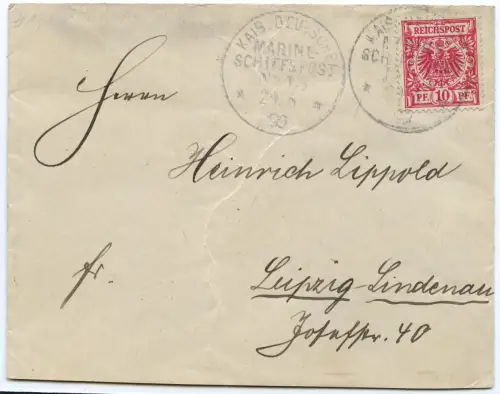 KAIS. DEUTSCHE
MARINE-
SCHIFFSPOST
99
REICHSPOST
PF. 10 PF.
Herrn
Heinrich Lippold
fr.
Leipzig-Lindenau
Josefstr. 40